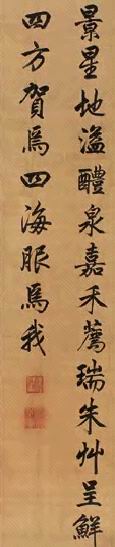 景星地溢醴泉嘉禾薦瑞朱艸呈鮮
四方賀焉四海服焉我